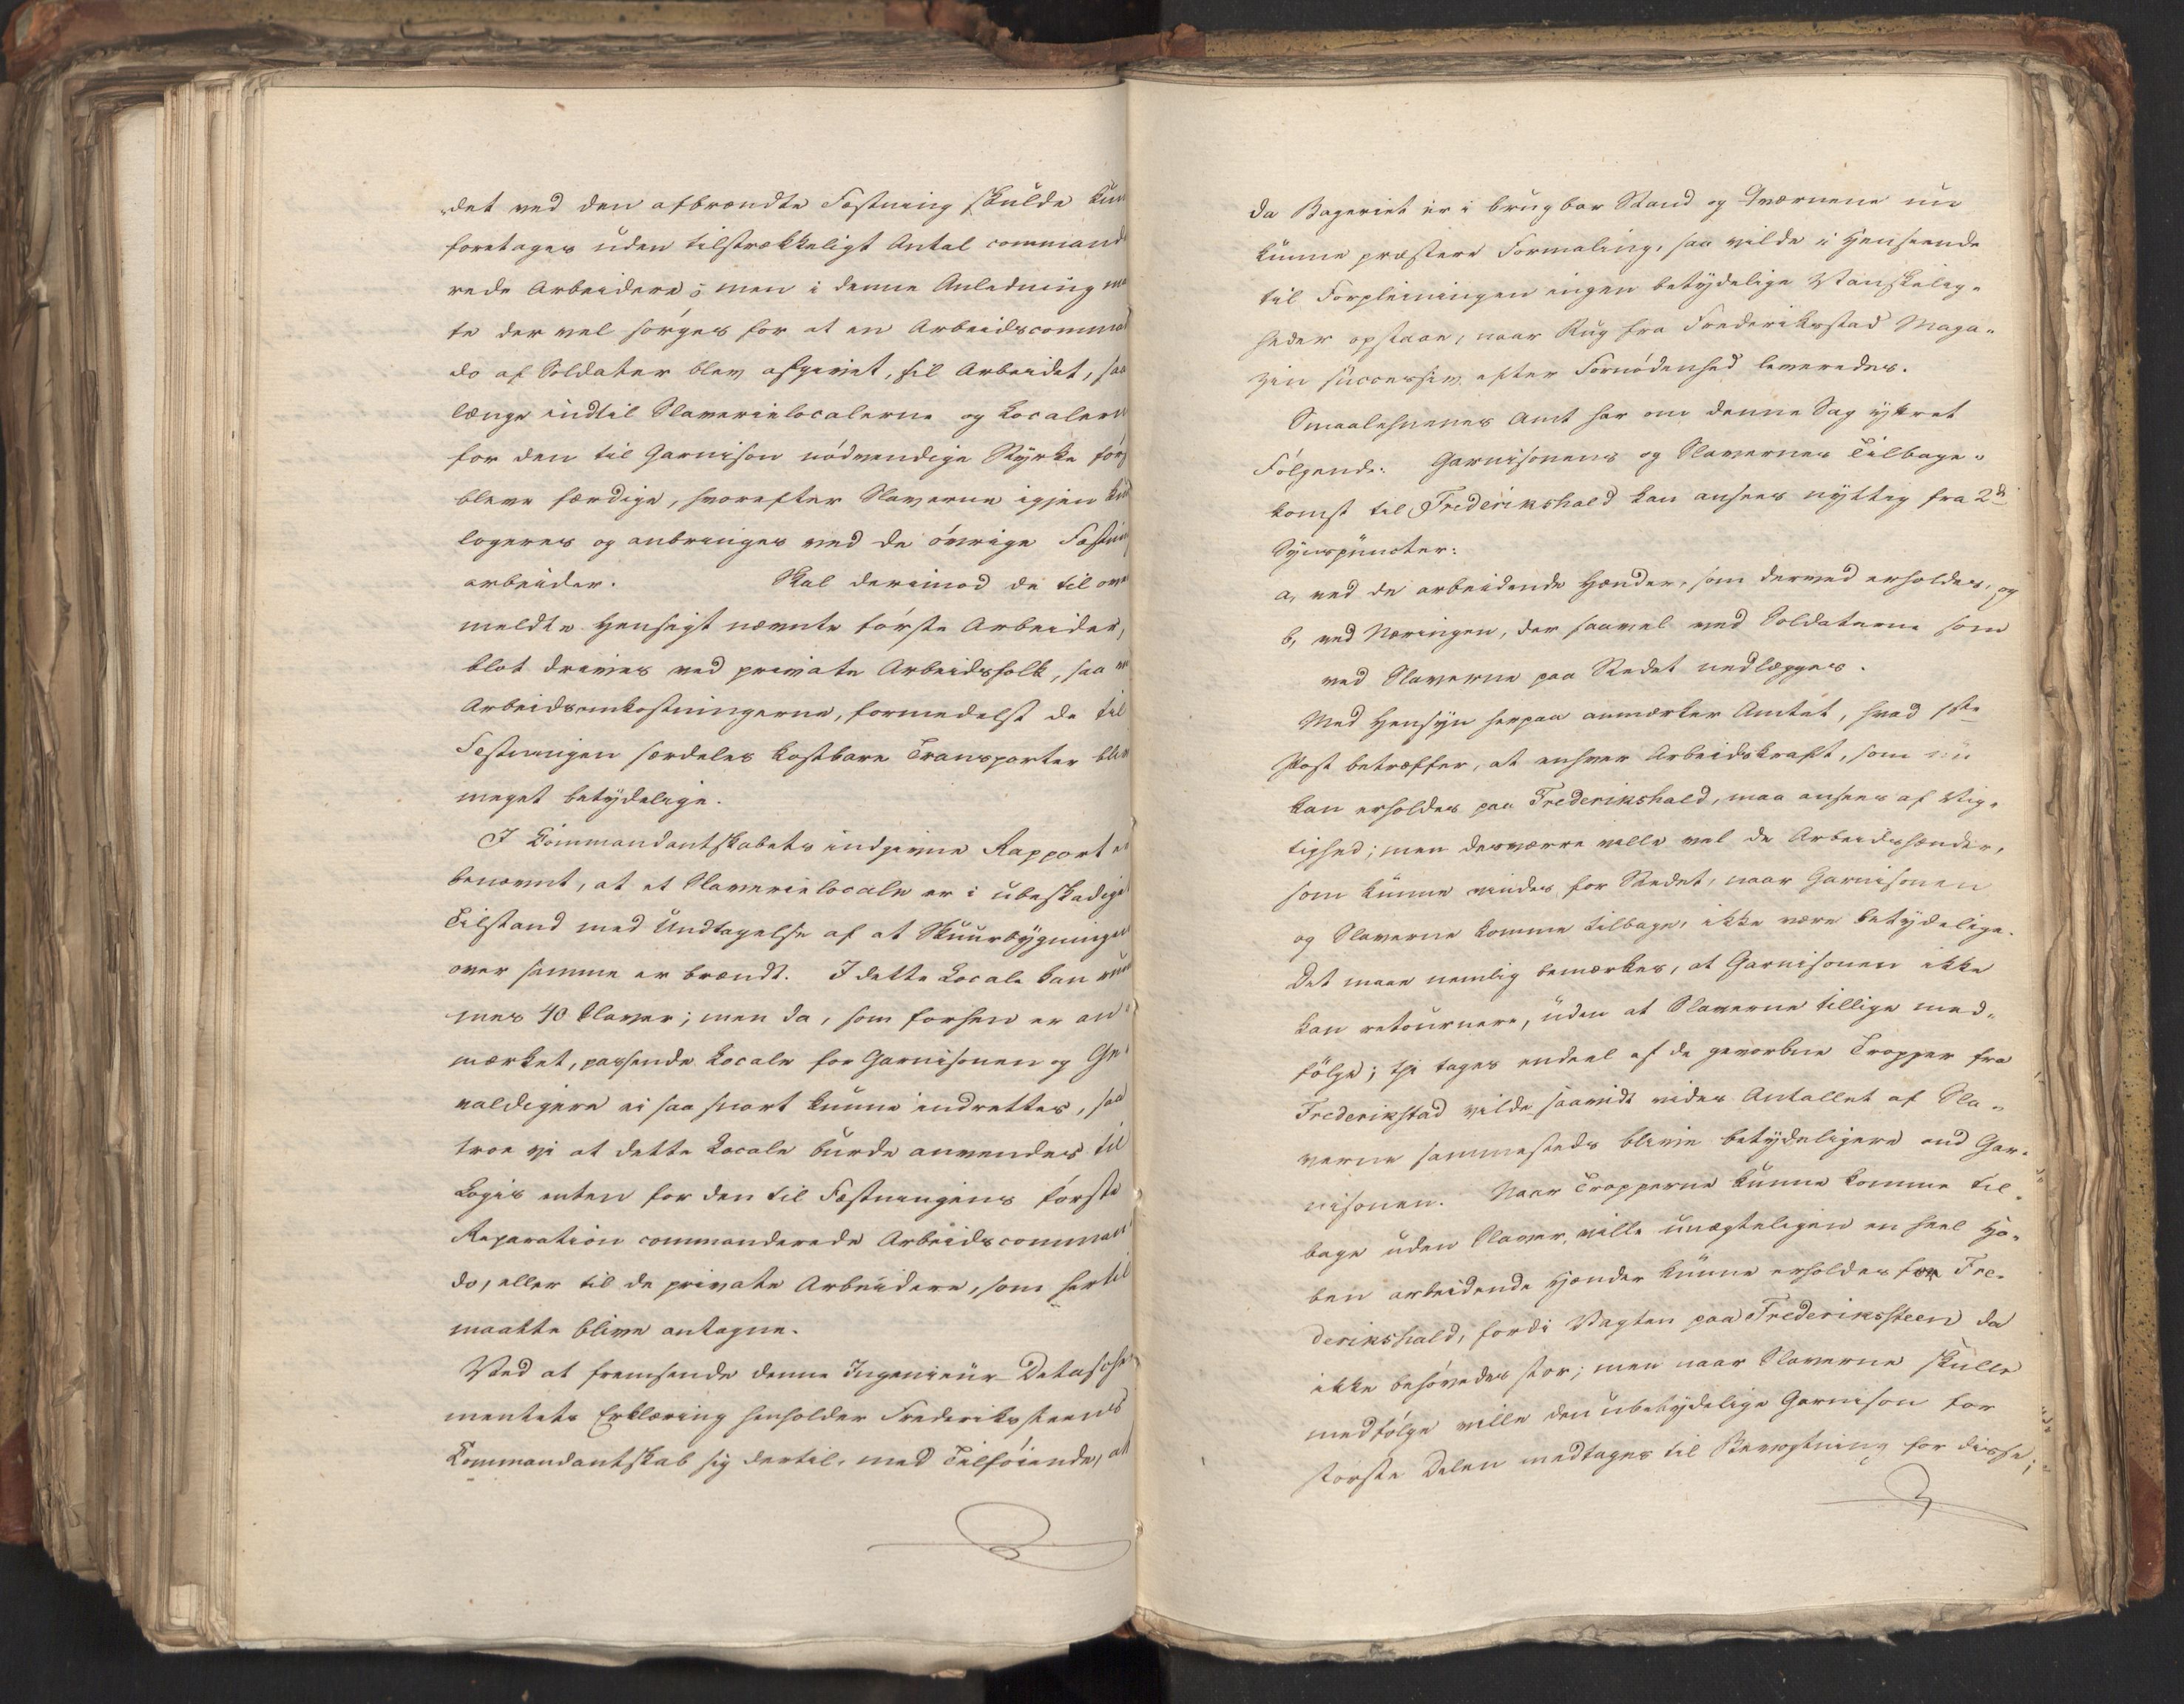 det ved den afbrændte Fæstning skulde kun
foretages uden tilstrækkeligt Antal command
rede Arbeidere; men i denne Anledning maa
te der vel sørges for at en Arbeidscomman
do af Soldater blev afgivet, til Arbeidet, saa
længe indtil Slaverielocalerne og Localerne
for den til Garnison nødvendige Styrke før
bleve færdige, hvorefter Slaverne igjen
logeres og anbringes ved de øvrige Fæstnings
arbeider. Skal derimod de til oven
meldte Hensigt nævnte første Arbeider,
blot drives ved private Arbeidsfolk, saa
Arbeidsomkostningerne, formedelst de til
Fæstningen særdeles kostbare Transporter blive
meget betydelige.
I Commandantskabets indgivne Rapport er
benævnt, at et Slaverielocale er i ubeskadiget
Tilstand med Undtagelse af at Skuurbygningen
over samme er brændt. I dette Locale kan rum
mes 40 Slaver; men da, som forhen er an
mærket, passende Locale for Garnisonen og Ge
valdigere ei saa snart kunne indrettes, saa
troe vi at dette Locale burde anvendes til
Logis enten for den til Fæstningens første
Reparation commanderede Arbeidscomman
do, eller til de private Arbeidere, som hertil
maatte blive antagne.
Ved at fremsende denne Ingenieur-Detasche
mentets Erklæring henholder Frederikssteens
Commandantskab sig dertil, med Tilføiende, at
da Bageriet er i brugbar Stand og Qværnene nu
kunne præstere Formaling, saa vilde i Henseende
til Forpleiningen ingen betydelige Vanskelig-
heder opstaae, naar Rug fra Frederiksstad Maga-
zin successiv efter Fornødenhed leveredes.
Smaalehnenes Amt har om denne Sag yttret
Følgende: Garnisonens og Slavernes Tilbage-
komst til Frederikshald kan ansees nyttig fra 2de
Synspuncter:
a, ved de arbeidende Hænder, som derved erholdes, og
b, ved Næringen, der saavel ved Soldaterne som
ved Slaverne paa Stedet nedlægges.
Med Hensyn herpaa anmærker Amtet, hvad 1ste
Post betræffer, at enhver Arbeidskraft, som nu
kan erholdes paa Frederikshald, maa ansees af Vig-
tighed; men desværre ville vel de Arbeidshænder,
som kunne vindes for Stedet, naar Garnisonen
og Slaverne komme tilbage, ikke være betydelige.
Det maae nemlig bemærkes, at Garnisonen ikke
kan retournere, uden at Slaverne tillige med-
følge; thi tages endeel af de gevorbne Tropper fra
Frederikstad vilde saavidt vides Antallet af Sla-
verne sammesteds blive betydeligere end Gar-
nisonen. Naar Tropperne kunne komme til-
bage uden Slaver, ville unægteligen en heel Ho-
ben arbeidende Hænder kunne erholdes for Fre-
derikshald, fordi Vagten paa Frederikssteen da
ikke behøvedes stor; men naar Slaverne skulle
medfølge ville den ubetydelige Garnison for
største Delen medtages til Bevogtning for disse;